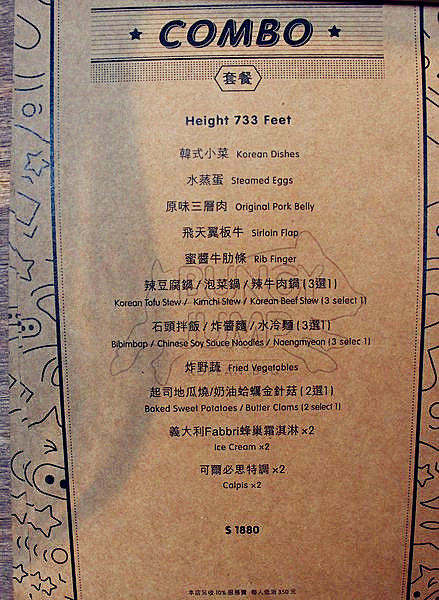 COMBO
套餐
Height 733 Feet
韓式小菜 Korean Dishes
水蒸蛋 Steamed Eggs
原味三層肉 Original Pork Belly
飛天翼板牛 Sirloin Flap
蜜醬牛肋條 Rib Finger
辣豆腐鍋 / 泡菜鍋 / 辣牛肉鍋 (3選1)
Korean Tofu Stew / Kimchi Stew / Korean Beef Stew (3 select 1)
石頭拌飯 / 炸醬麵 / 水冷麵 (3選1)
Bibimbap / Chinese Soy Sauce Noodles / Naengmyeon (3 select 1)
炸野蔬 Fried Vegetables
起司地瓜燒/奶油蛤蠣金針菇 (2選1)
Baked Sweet Potatoes / Butter Clams (2 select 1)
義大利Fabbri蜂巢霜淇淋 ×2
Ice Cream ×2
可爾必思特調 ×2
Calpis ×2
$ 1880
本店另收10%服務費 每人低消350元